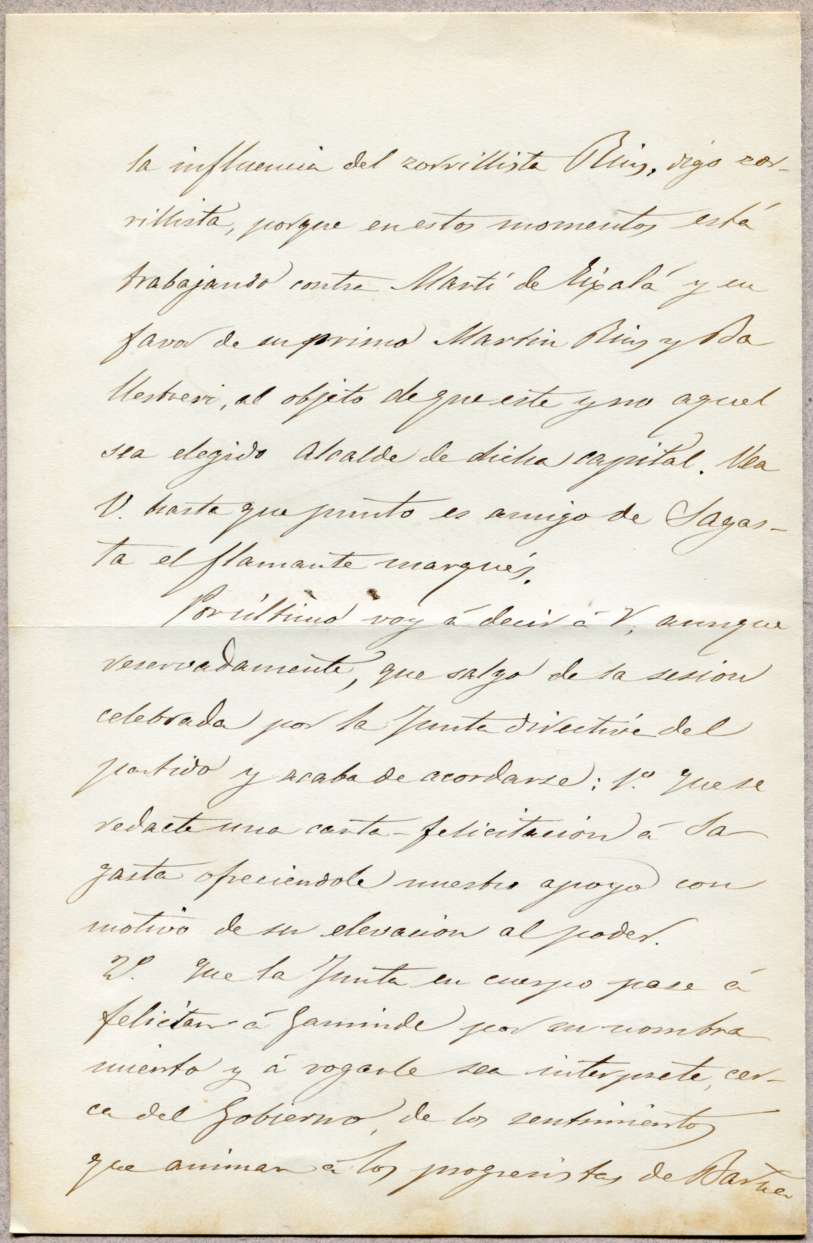 la influencia del zorrillista Rius, digo zor-
rillista, porque en estos momentos está
trabajando contra Martí de Eixalá y en
favor de su primo Martin Rius y Ba
llesteri, al objeto de que este y no aquel
sea elegido Alcalde de dicha capital. Vea
V. hasta que punto es amigo de Sagas-
ta el flamante marqués.
Por último voy á decir á V, aunque
reservadamente, que salgo de la sesion
celebrada por la Junta directiva del
partido y acaba de acordarse: 1º. Que se
redacte una carta-felicitacion á Sa
gasta ofreciendole nuestro apoyo con
motivo de su elevacion al poder.
2º. Que la Junta en cuerpo pase á
felicitar á Gaminde por su nombra
miento y á rogarle sea interprete, cer-
ca del Gobierno, de los sentimientos
que animan á los progresistas de